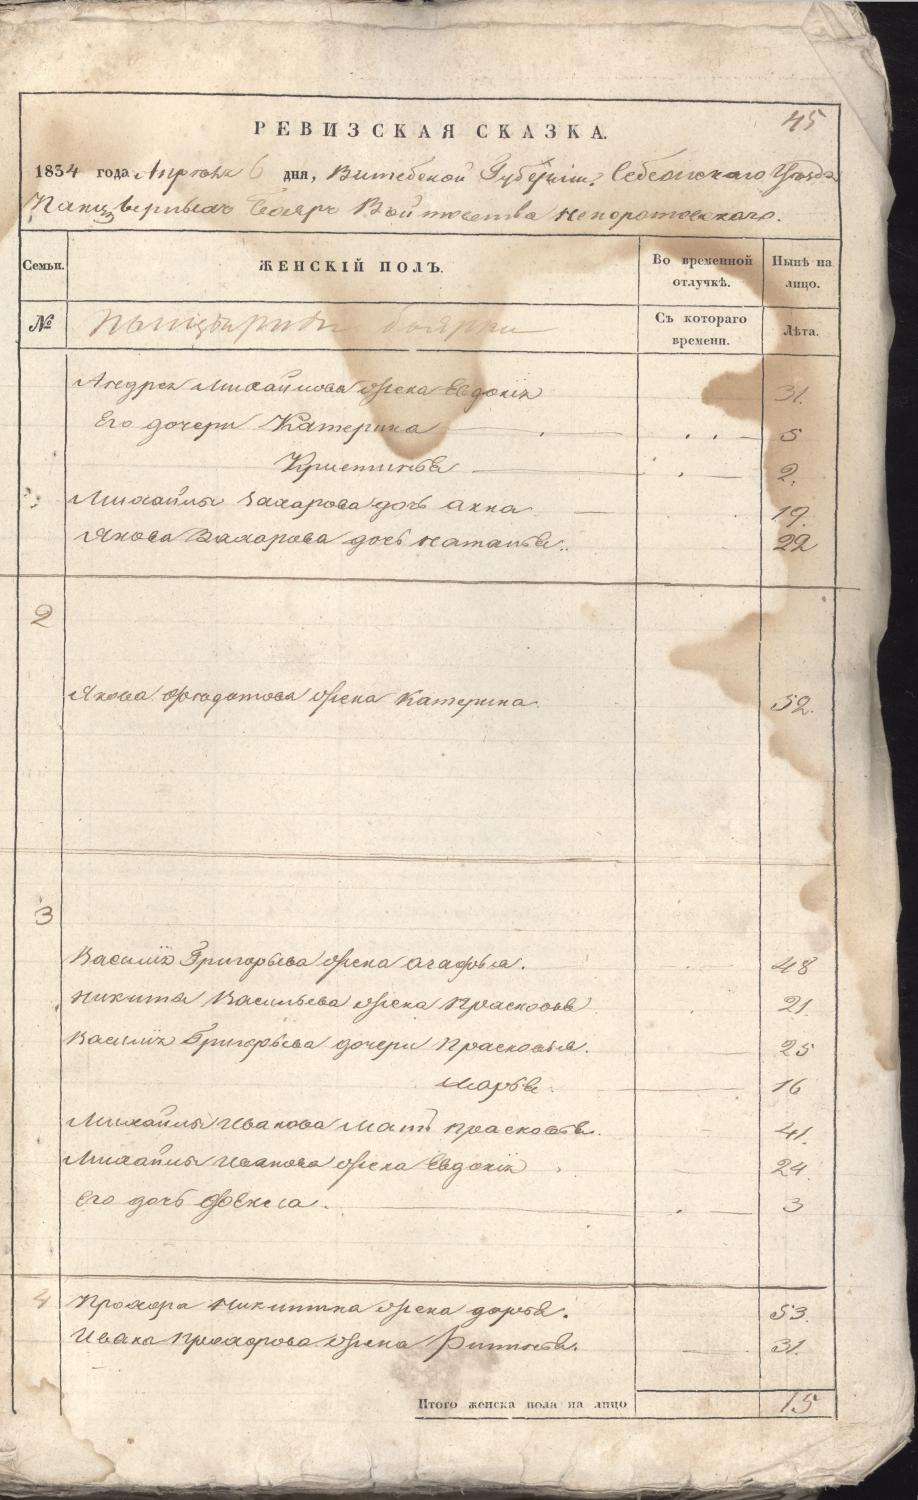 45
РЕВИЗСКАЯ СКАЗКА.
1834 года Апреля 6 дня, Витебской Губернии Себежского Уезда
Панцырныхъ Бояръ Войтовства Непоротовского.
Семьи. ЖЕНСКІЙ ПОЛЪ. Во временной отлучкѣ. Нынѣ на лицо.
№ Панцырные боярки Съ котораго времени. Лѣта.
Андрея Михайлова жена Евдокія 31.
Его дочери Катерина 5
Кристинья 2.
Михайлы Захарова дочь Анна 19.
Якова Захарова дочь Наталья 22
2
Якова жена Катерина 52.
3
Василія Григорьева жена Агафья. 48
Никиты Васильева жена Прасковья 21.
Василія Григорьева дочери Прасковья. 25
Марья 16
Михайлы Иванова мать Прасковья. 41.
Михайлы Иванова жена Евдокія 24
Его дочь Фёкла. 3
4 Прохора Никитина жена Дарья. 53.
Ивана Прохорова жена 31.
Итого женска пола на лицо 15